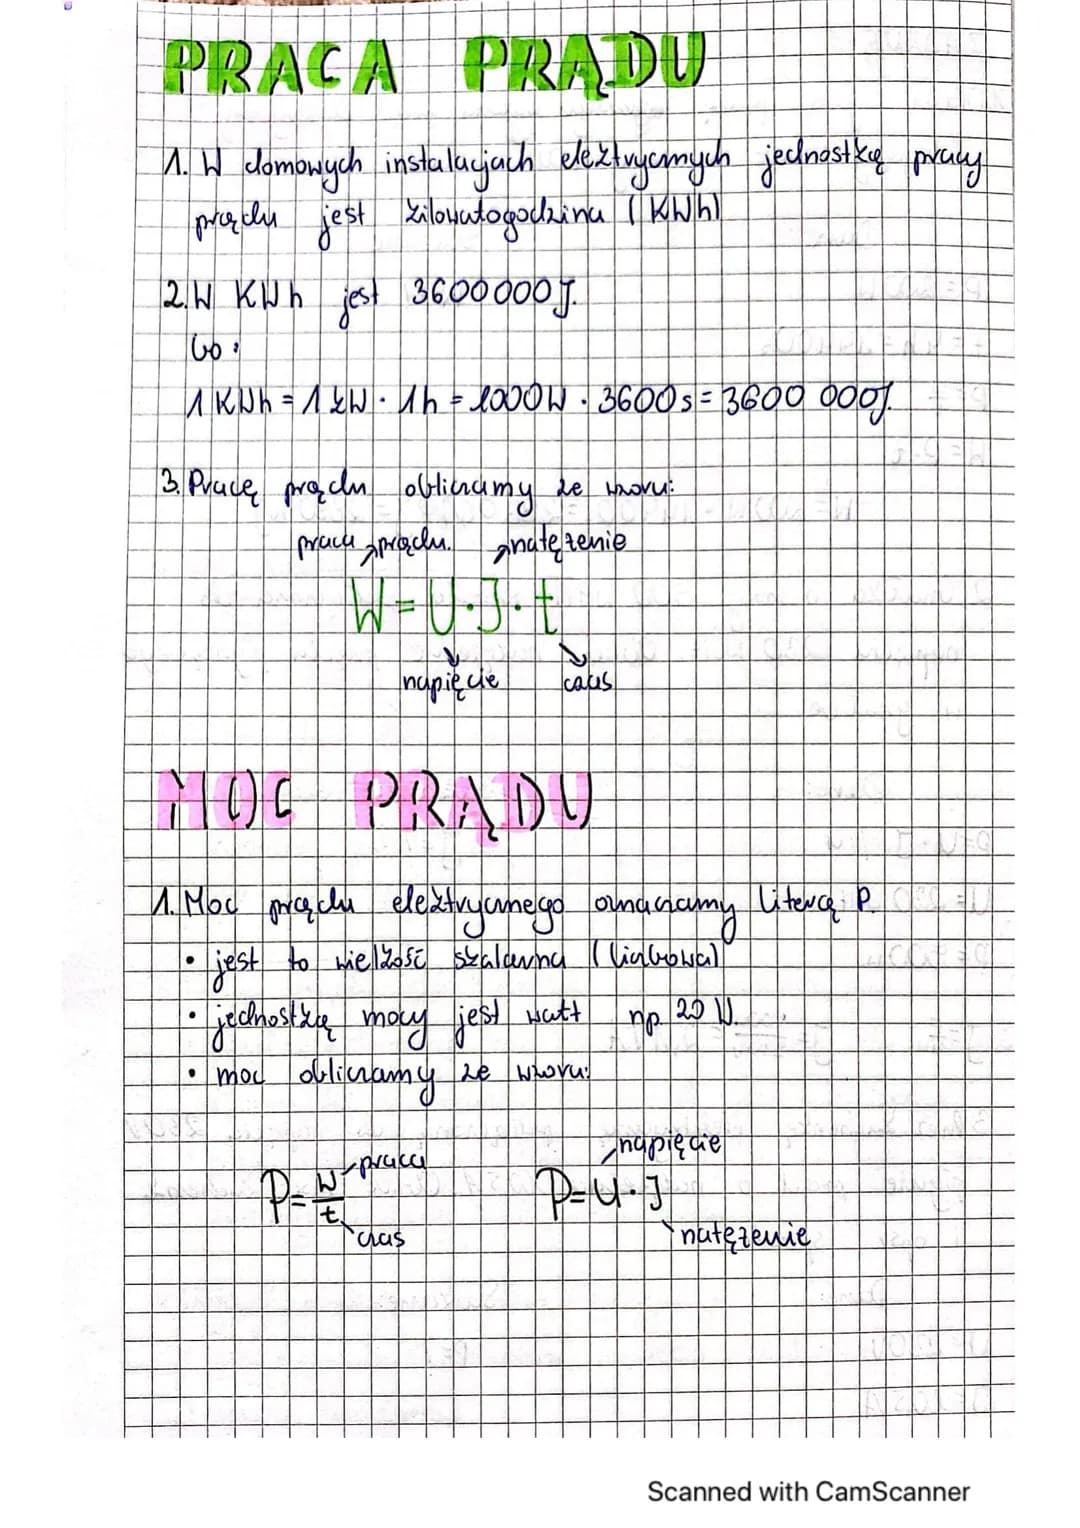 PRACA PRĄDU
1. W domowych instalacjach elektrycznych jednostką pracy
prądu jest kilowatogodzina (KWh)
2. W KWh jest 3600000J.
bo:
1 KWh = 1 kW · 1h = 1000W · 3600s = 3600 000J.
3. Pracę prądu obliczamy ze wzoru:
praca prądu. natężenie
W = U · J · t
napięcie czas
MOC PRĄDU
1. Moc prądu elektrycznego oznaczamy literą P.
• jest to wielkość skalarna (liczbowa)
• jednostką mocy jest watt np. 20 W.
• moc obliczamy ze wzoru:
praca napięcie
P = W/t P = U · J
czas natężenie
Scanned with CamScanner